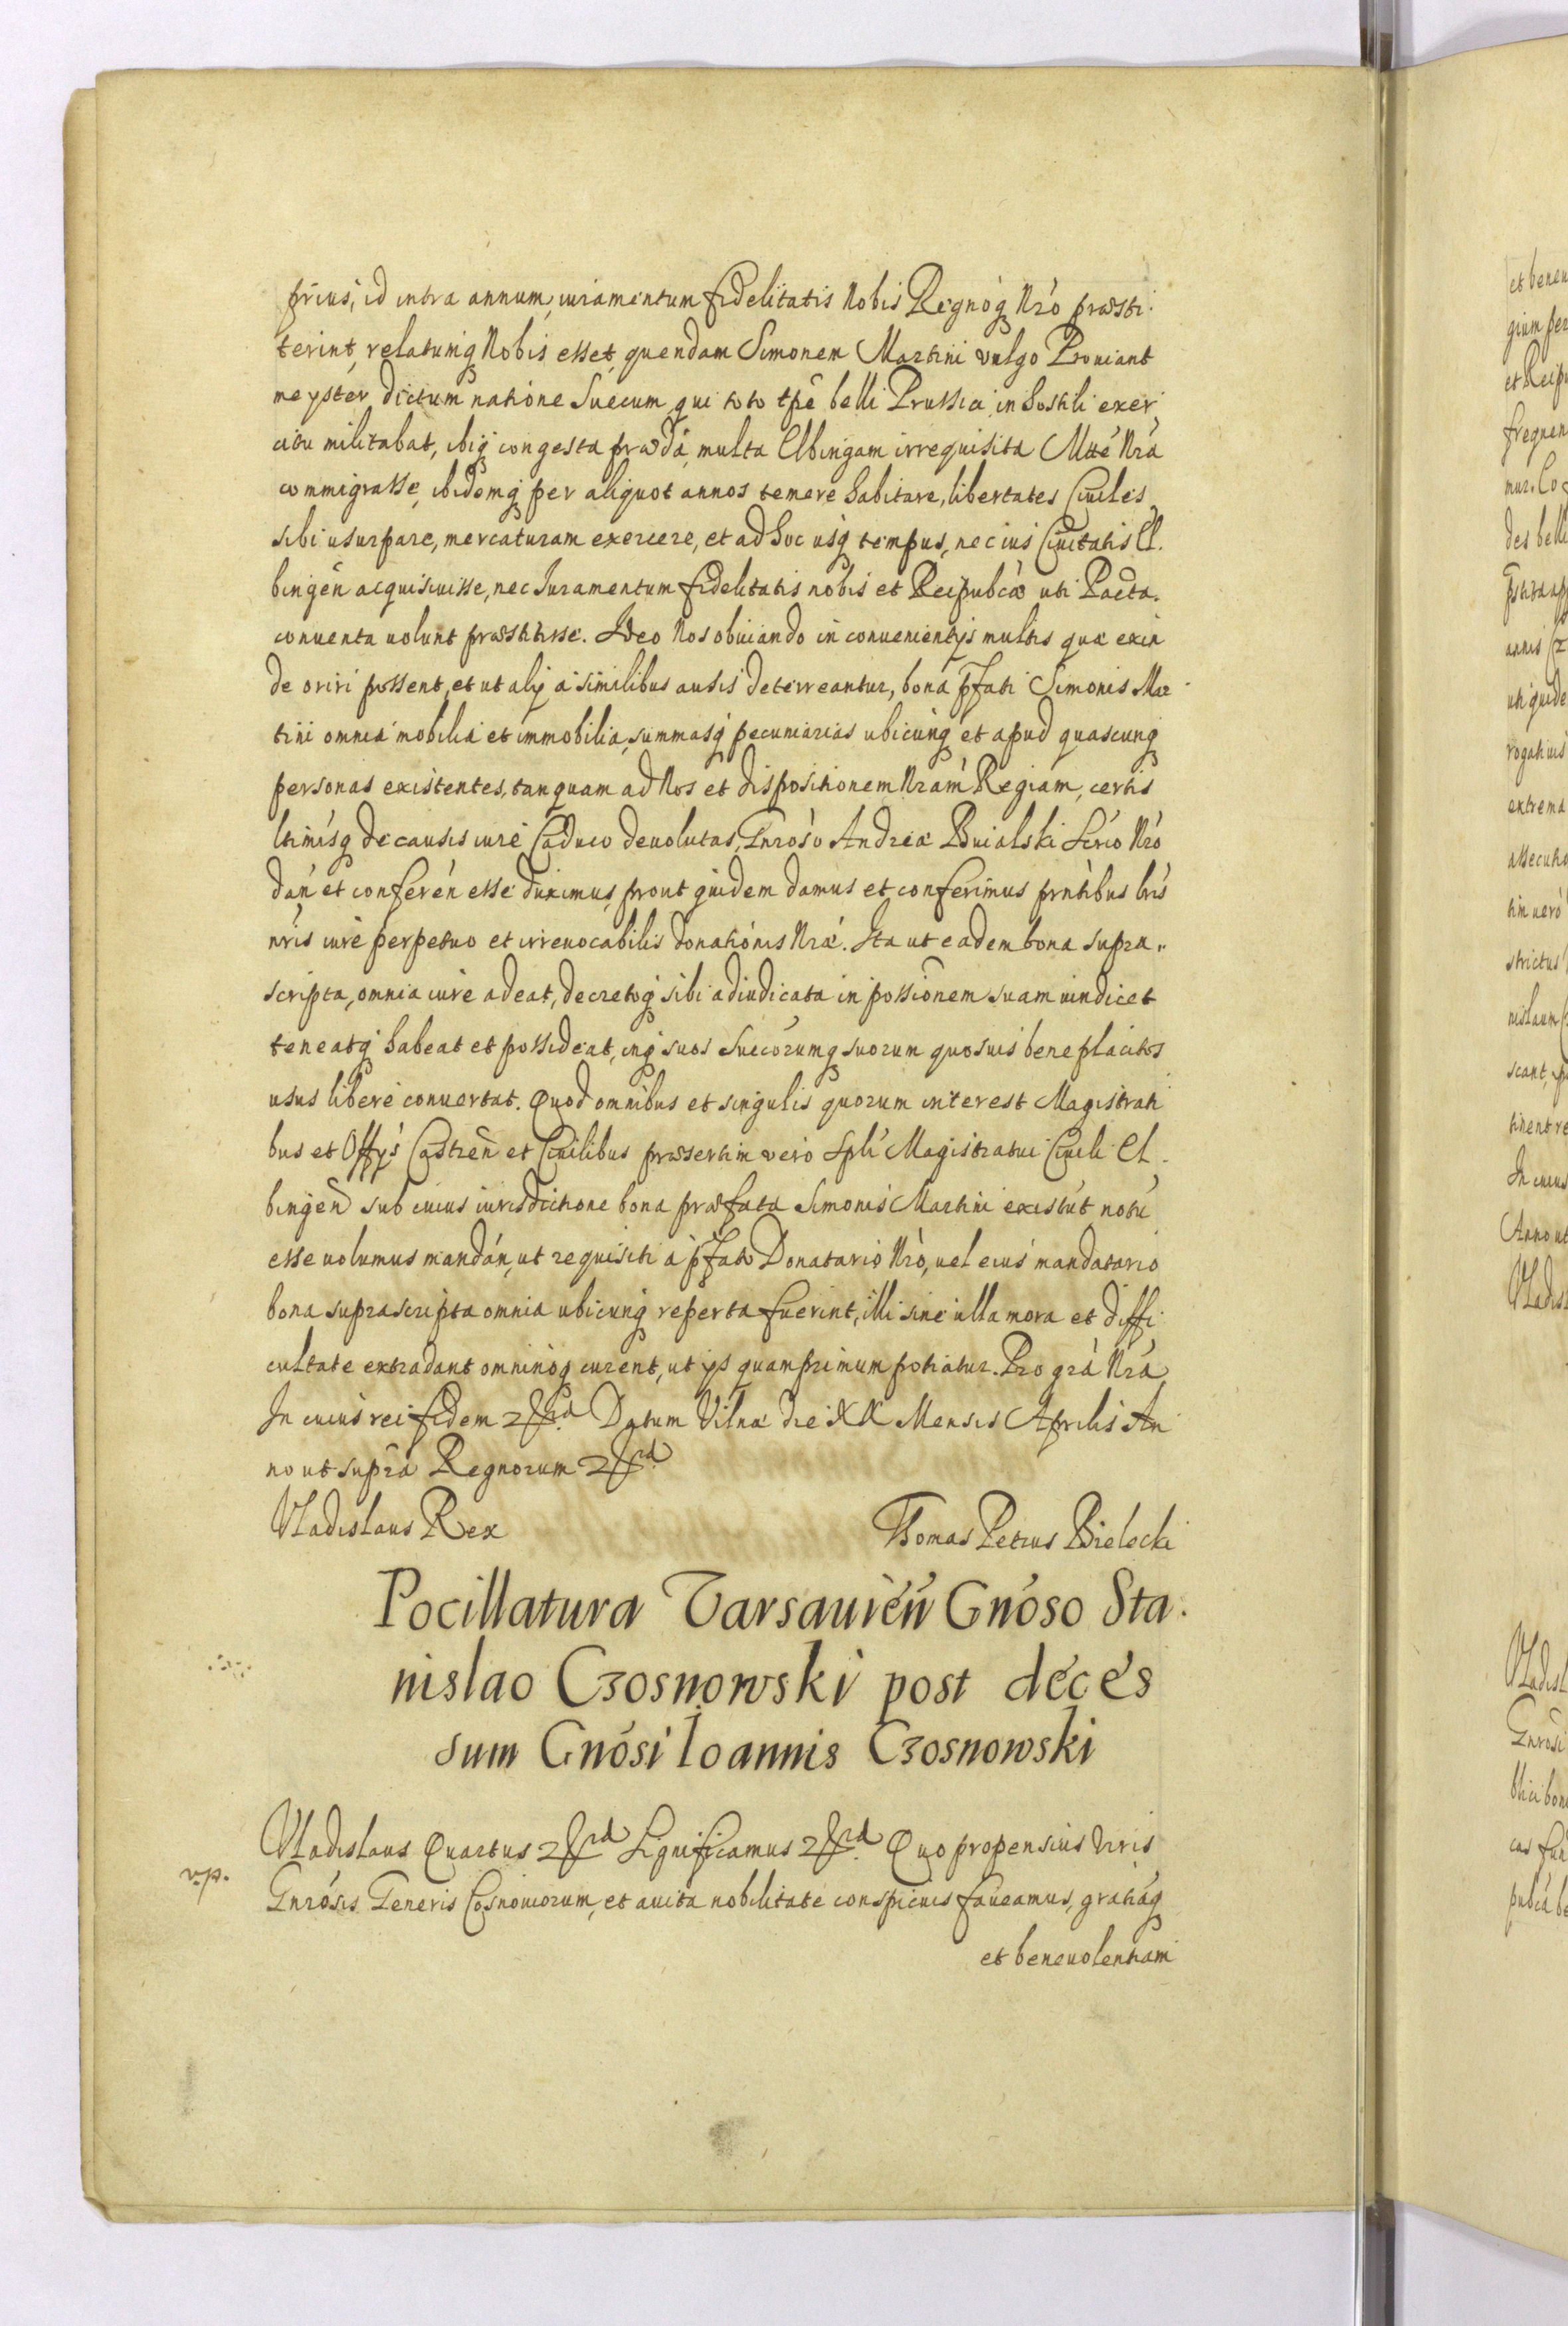 prius, id intra annum, iuramentum fidelitatis Nobis Regnoq Nró præsti
terint, relatumq Nobis esset, quendam Simonem Martini vulgo Prouiant
meyster dictum natione Suecum, qui toto tpe belli Prussici in hostili exer
citu militabat, ibiq congesta præda, multa Elbingam irrequisita Mtte Nrá
commigrasse, ibidemq per aliquot annos temere habitare, libertates Ciuiles
sibi usurpare, mercaturam exercere, et ad hoc usq tempus, nec ius Ciuitatis El.
bingen acquisiuisse, nec Iuramentum fidelitatis nobis et Reipubcæ uti Pacta.
conuenta uolunt præstitisse. Ideo Nos obuiando inconuenientijs multis quæ exin
de oriri possent, et ut alij á similibus ausis deterreantur, bona pfati Simonis Mar
tini omnia mobilia et immobilia, summasq pecuniarias ubicunq et apud quascunq
personas existentes, tanquam ad Nos et dispositionem Nram Regiam, certis
ltimisq de causis iure Caduco deuolutas, Gnroso Andreæ Buialski Serio Nró
dan et conferen esse duximus, prout quidem damus et conferimus prntibus lris
nris iure perpetuo et irreuocabilis donationis Nræ. Ita ut eadem bona supra„
scripta, omnia iure adeat, decretoq sibi adiudicata in possionem suam uindicet
teneatq habeat et possideat, inq suos Suecorumq suorum quosuis beneplacitos
usus libere conuertat. Quod omnibus et singulis quorum interest Magistrati
bus et Offijs Castren et Ciuilibus præsertim vero Spli Magistratui Ciuili El.
bingen sub cuius iurisdictione bona præfata Simonis Martini existut notu
esse uolumus mandan, ut requisiti á pfato Donatario Nrò, uel eius mandatario
bona suprascripta omnia ubicunq reperta fuerint, illi sine ulla mora et diffi
cultate extradant omninoq curent, ut ijs quamprimum potiatur. Pro grá Nrá
In cuius rei fidem Datum Vilnæ die XX Mensis Aprilis An
no ut supra Regnorum
Vladislaus Rex Thomas Petrus Bielecki
Pocillatura Varsauień Gnóso Sta.
nislao Czosnowski post deces
sum Gnósi Ioannis Czosnowski
Vladislaus Quartus Significamus Quo propensius Viris
v.p.
Gnrósis Generis Cosnouiorum, et auita nobilitate conspicuis faueamus, gratiáq
et beneuolentiam